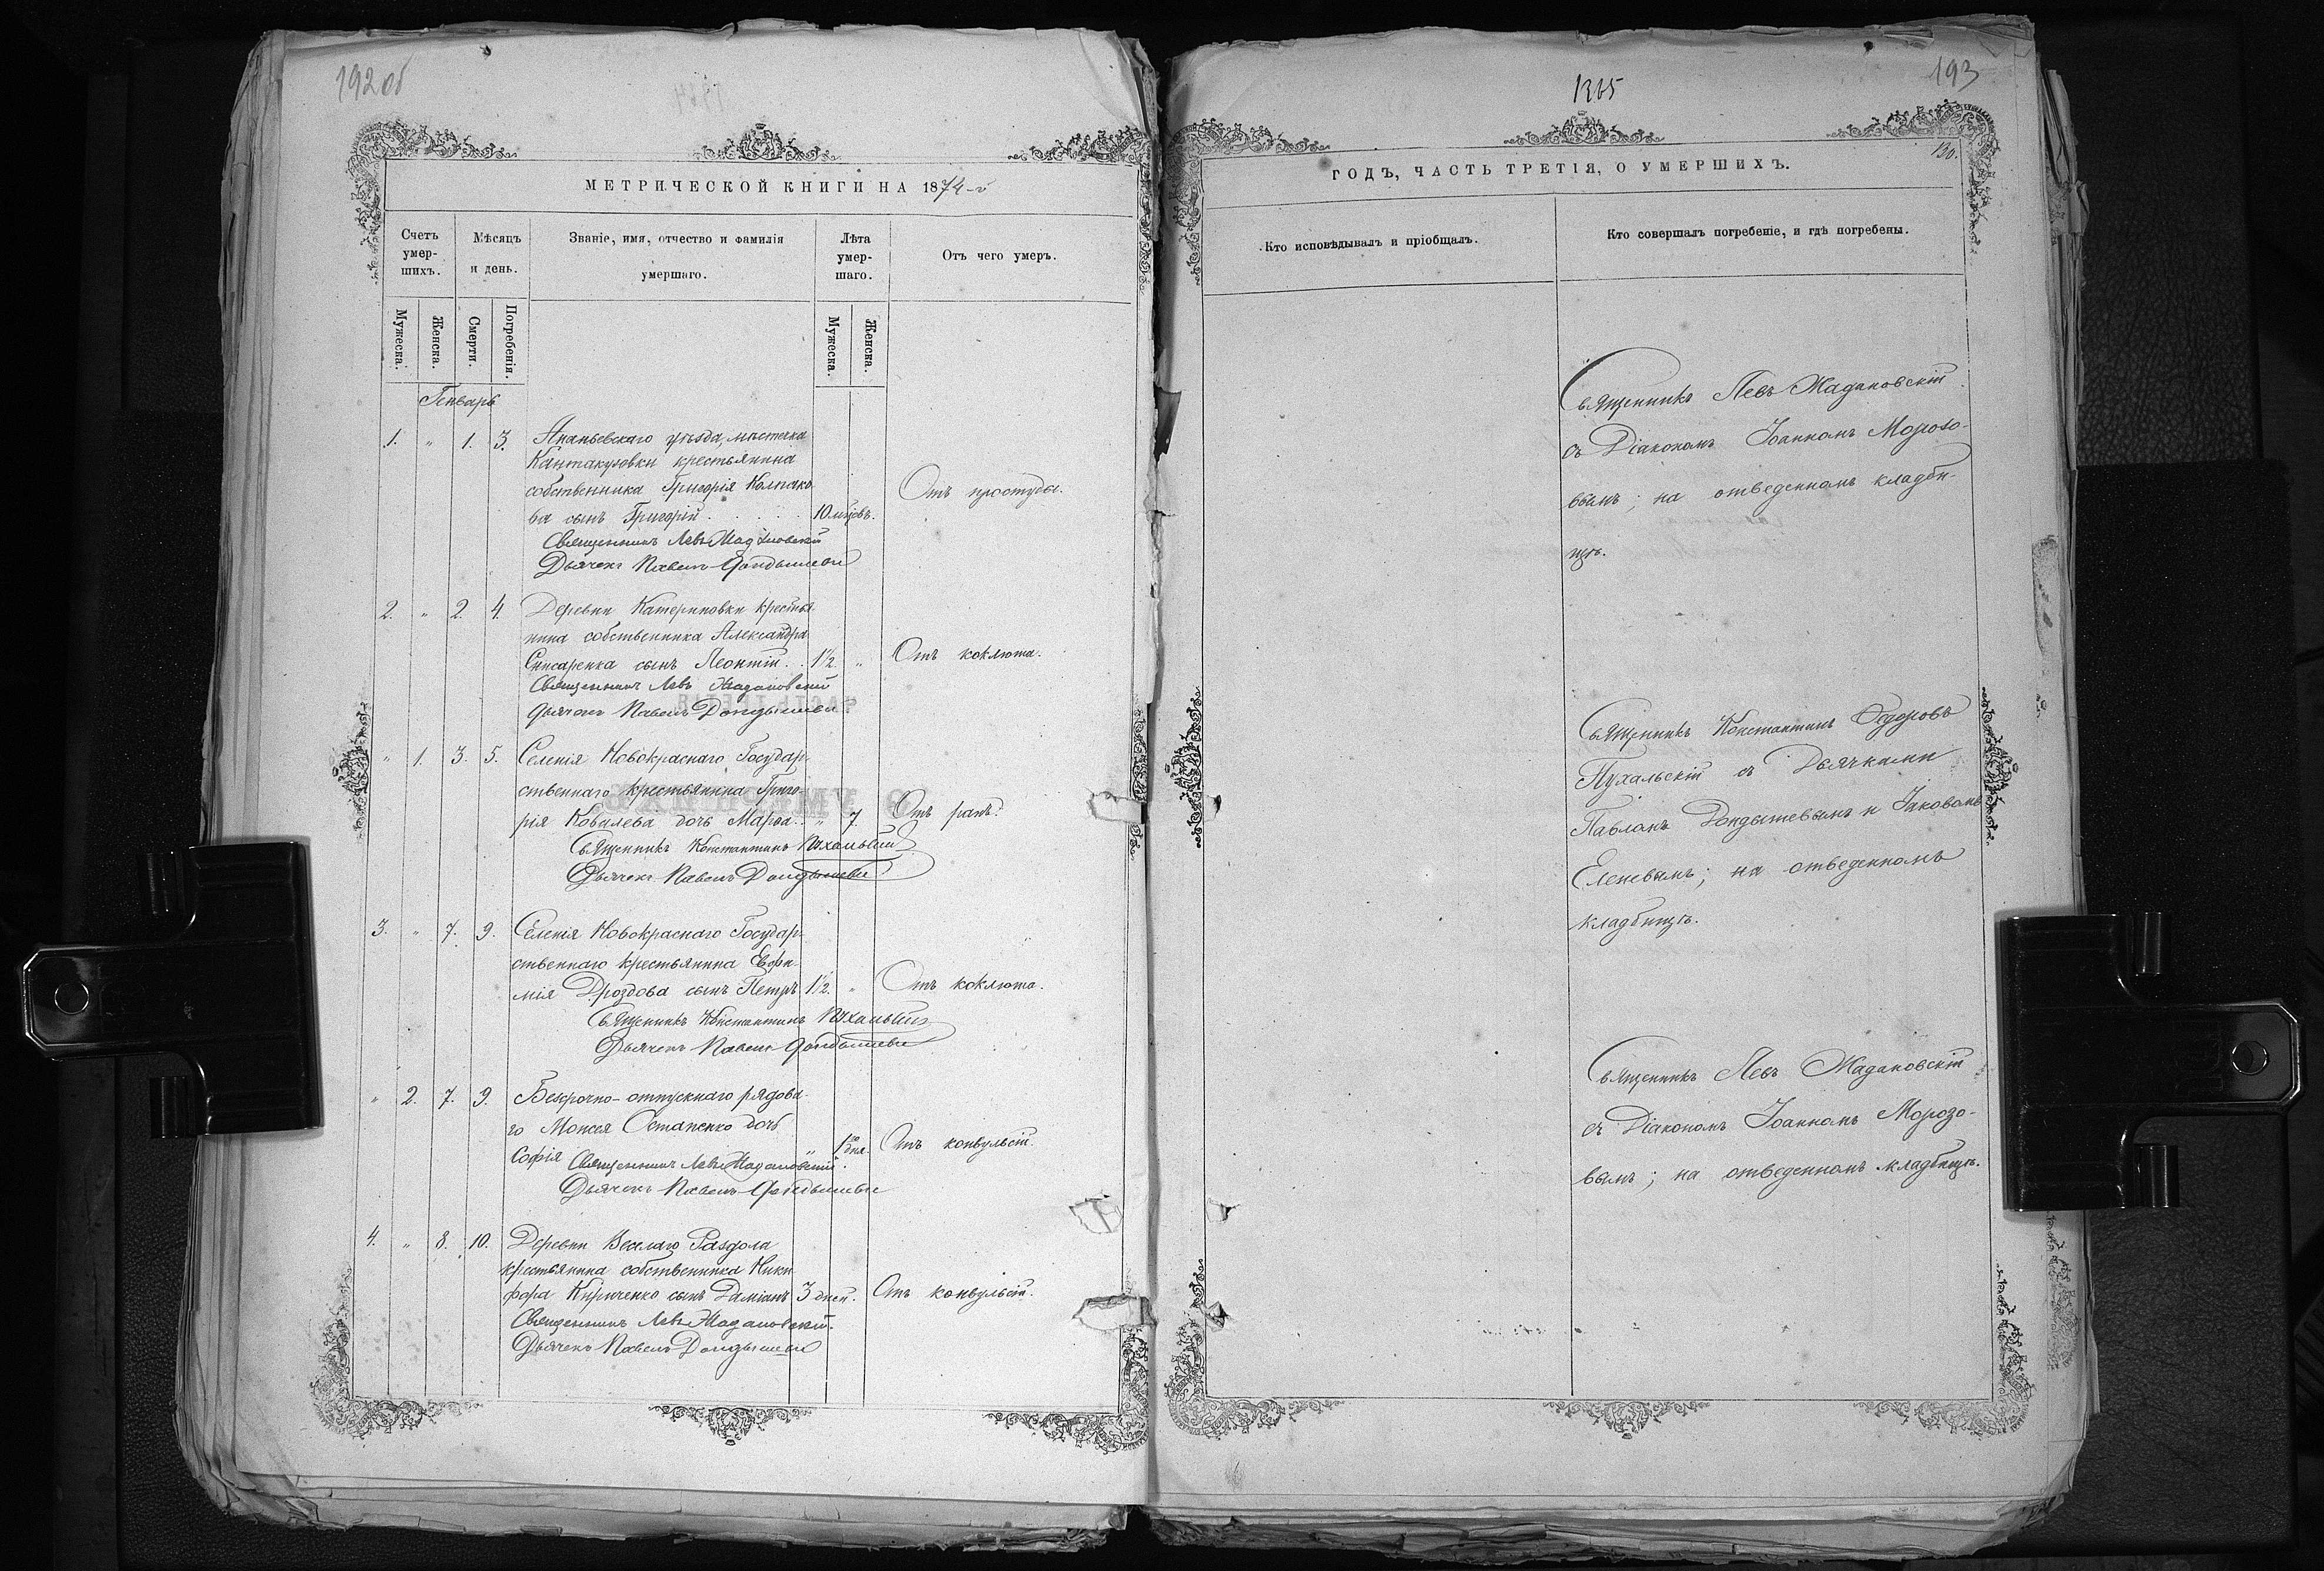 192 об
МЕТРИЧЕСКОЙ КНИГИ НА 1874-й
Счетъ умер-шихъ.
Мѣсяцъ и день.
Званіе, имя, отчество и фамилія умершаго.
Лѣта умер-шаго.
Отъ чего умеръ.
Мужеска.
Женска.
Смерти.
Погребенія.
Мужеска.
Женска.
Генварь
1. " 1. 3. Ананьевскаго уѣзда, мѣстечка
Кантакузовки крестьянина
собственника Григорія Колпако-
ва сынъ Григорій . . . . . 10 мцовъ. Отъ простуды.
Священникъ Левъ Жадановскій
Дьячекъ Павелъ Дондышевъ
2. " 2. 4. Деревни Катериновки крестья-
нина собственника Александра
Списаренка сынъ Леонтій . . 1½ " Отъ коклюша.
Священникъ Левъ Жадановскій
Дьячекъ Павелъ Дондышевъ
" 1. 3. 5. Селенія Новокраснаго Государ-
ственнаго крестьянина Григо-
рія Ковалева дочь Марѳа . . " 7. Отъ ранъ.
Священникъ Константинъ Пухальскій
Дьячекъ Павелъ Дондышевъ
3. " 7. 9. Селенія Новокраснаго Государ-
ственнаго крестьянина Евфи-
мія Дроздова сынъ Петръ 1½. " Отъ коклюша.
Священникъ Константинъ Пухальскій
Дьячекъ Павелъ Дондышевъ
" 2. 7. 9. Безсрочно-отпускнаго рядова-
го Моисея Остапенко дочь
Софія " 1го дня. Отъ конвульсій.
Священникъ Левъ Жадановскій.
Дьячекъ Павелъ Дондышевъ
4. " 8. 10. Деревни Веслаго Раздола
крестьянина собственника Ники-
фора Кириченко сынъ Даміанъ 3 дней. Отъ конвульсій.
Священникъ Левъ Жадановскій.
Дьячекъ Павелъ Дондышевъ
193
130.
ГОДЪ, ЧАСТЬ ТРЕТІЯ, О УМЕРШИХЪ.
Кто исповѣдывалъ и пріобщалъ.
Кто совершалъ погребеніе, и гдѣ погребены.
Священникъ Левъ Жадановскій
съ Діакономъ Іоанномъ Морозо-
вымъ; на отведенномъ кладби-
щѣ.
Священникъ Константинъ Ѳедоровъ
Пухальскій съ Дьячками
Павломъ Дондышевымъ и Іаковомъ
Еленевымъ; на отведенномъ
кладбищѣ.
Священникъ Левъ Жадановскій
съ Діакономъ Іоанномъ Морозо-
вымъ; на отведенномъ кладбищѣ.